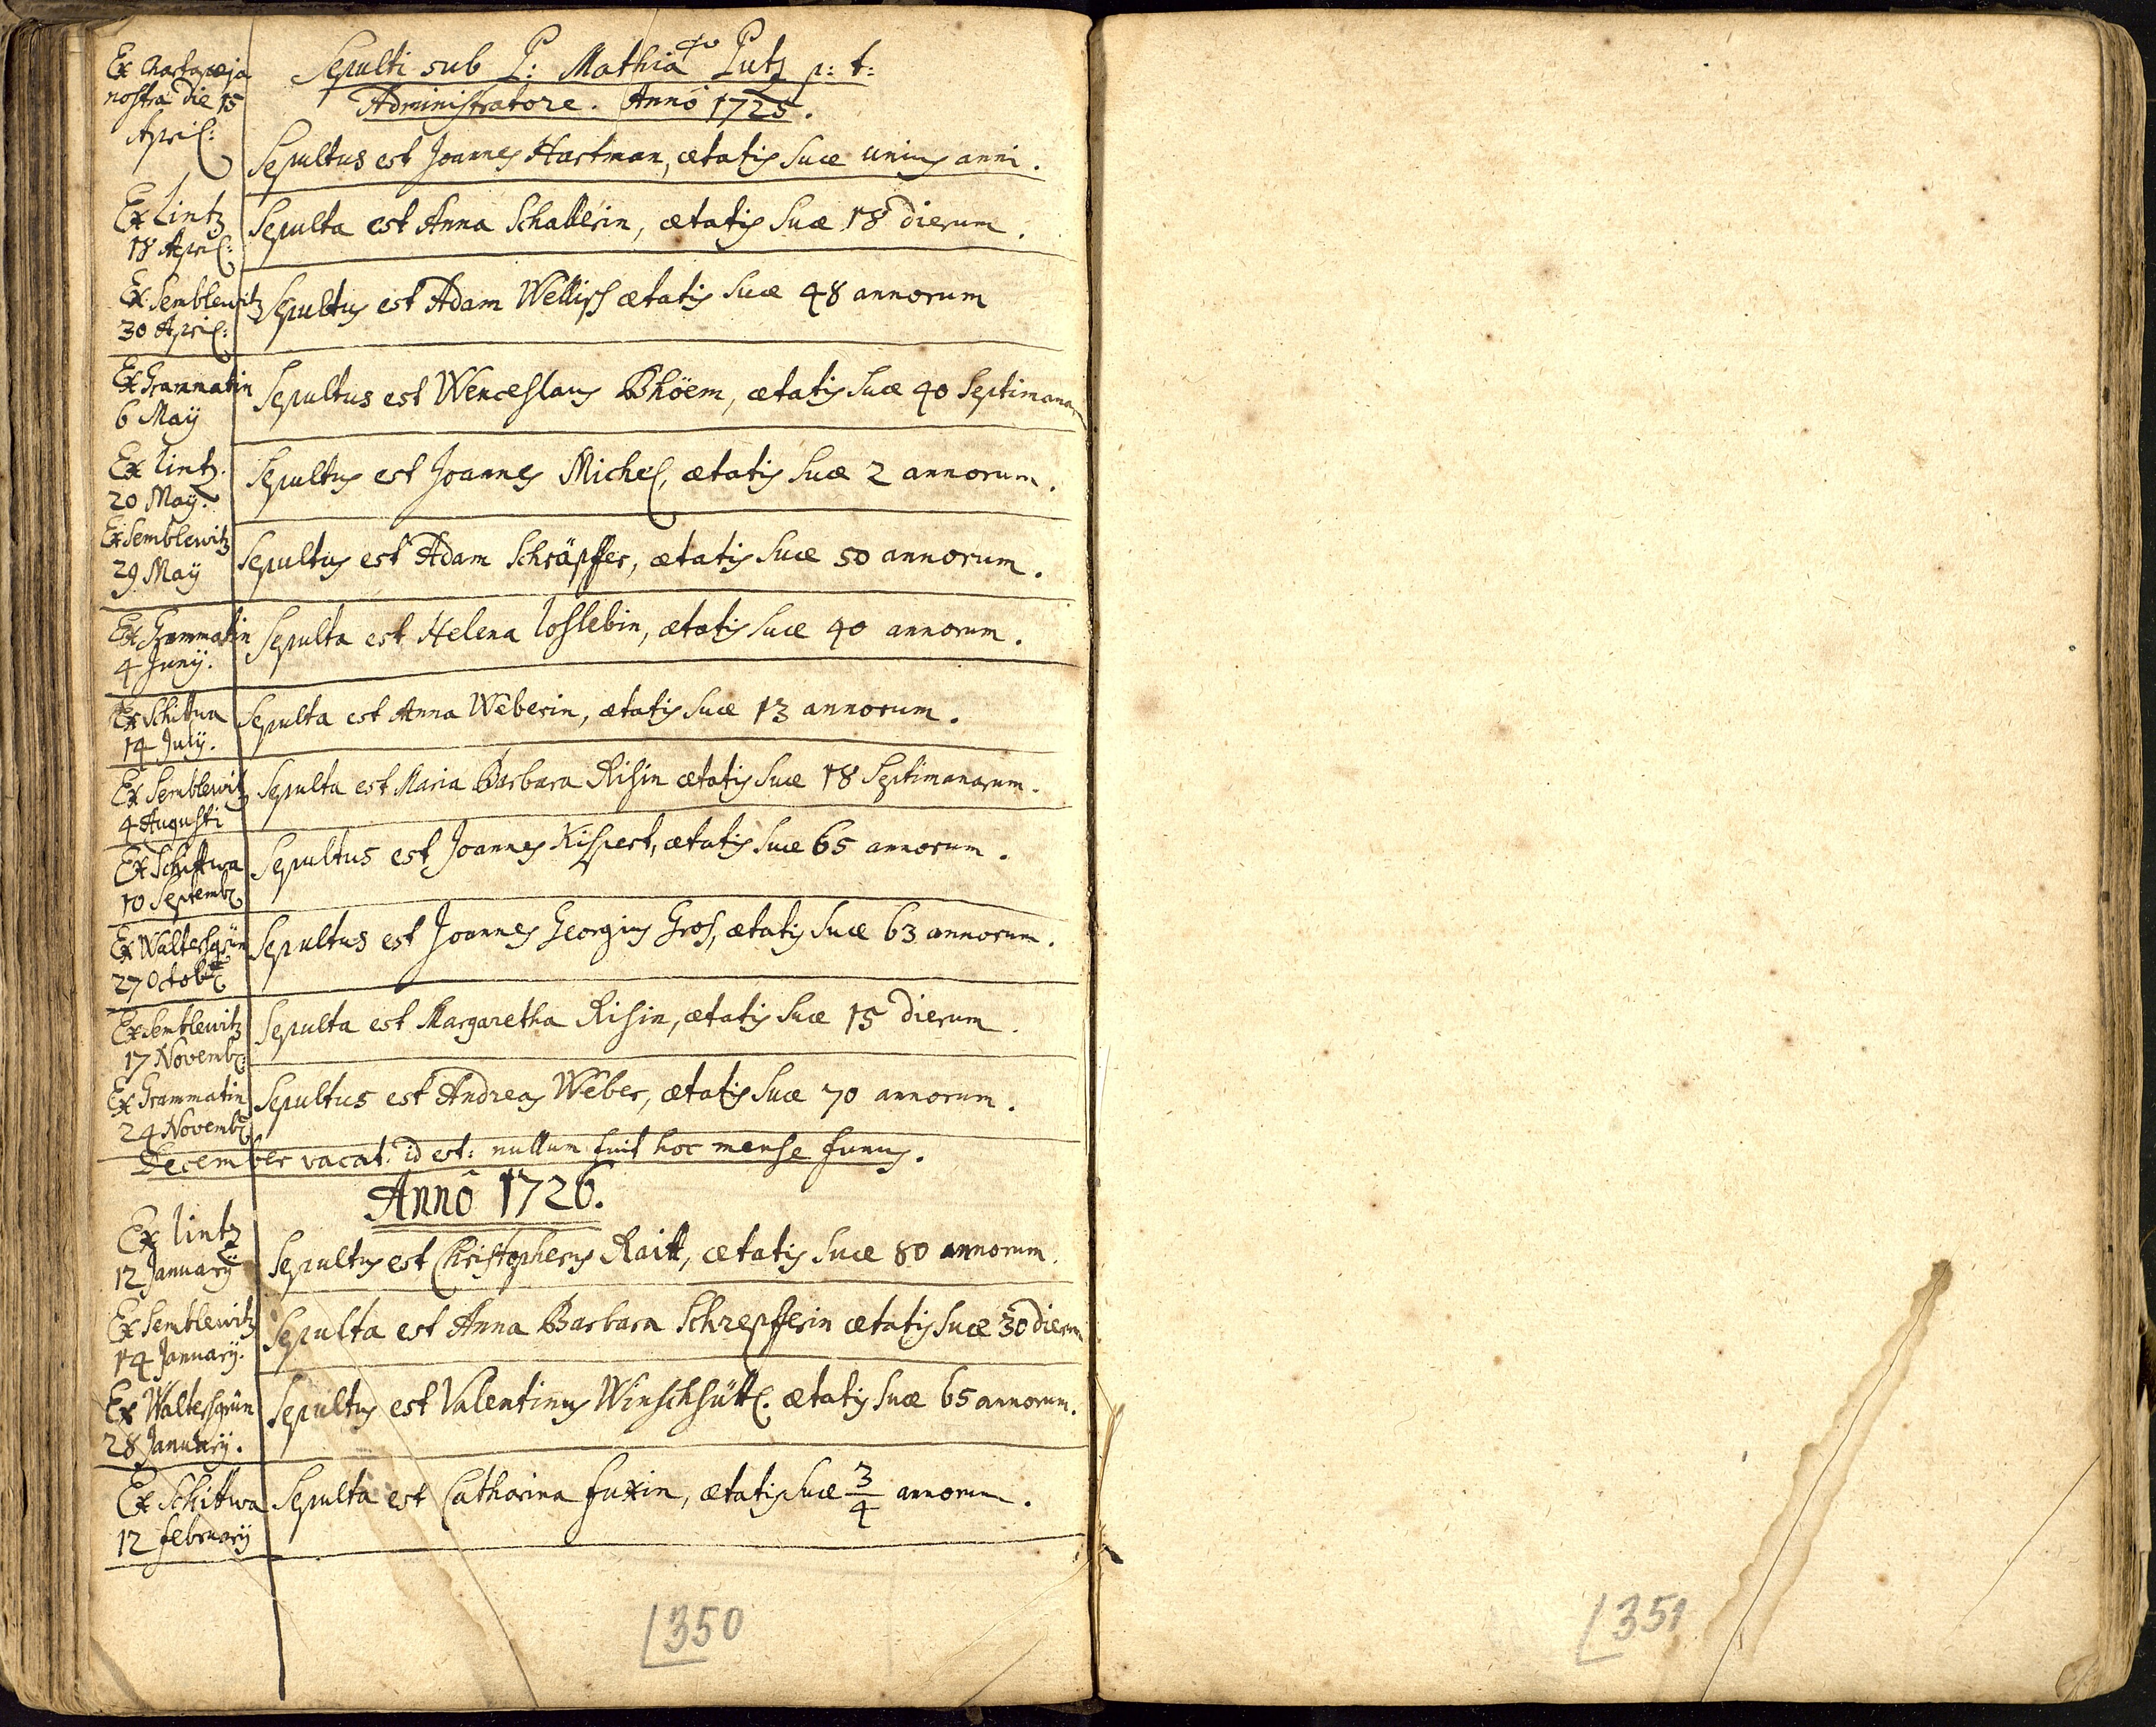 Sepulti sub P: Mathia Putz p: t:
Administratore. Anno 1725.
Ex Chartapæja
nostra die 15
April:
Sepultus est Joannes Hartman, ætatis suæ unius anni.
Ex Lintz
18 April:
Sepulta est Anna Schallerin, ætatis suæ 18 dierum.
Ex Semblewitz
30 April:
Sepultus est Adam Wellisch ætatis suæ 48 annorum
Ex Grammatin
6 Maÿ
Sepultus est Wenceslaus Bhöem, ætatis suæ 40 Septimana
Ex Lintz.
20 Maÿ.
Sepultus est Joannes Michel, ætatis suæ 2 annorum.
Ex Semblewitz
29 Maÿ
Sepultus est Adam Schräpffer, ætatis suæ 50 annorum.
Ex Grammatin
4 Junÿ.
Sepulta est Helena Loslebin, ætatis suæ 40 annorum.
Ex Schittwa
14 Julÿ.
Sepulta est Anna Weberin, ætatis suæ 13 annorum.
Ex Semblewitz
4 Augusti
Sepulta est Maria Barbara Risin ætatis suæ 18 Septimanarum.
Ex Schittwa
10 Septemb:
Sepultus est Joannes Kispert, ætatis suæ 65 annorum.
Ex Waltersgrün
27 Octob:
Sepultus est Joannes Georgius Gros, ætatis suæ 63 annorum.
Ex Semblewitz
17 Novemb:
Sepulta est Margaretha Risin, ætatis suæ 15 dierum.
Ex Grammatin
24 Novemb:
Sepultus est Andreas Weber, ætatis suæ 70 annorum.
December vacat: id est: nullum fuit hoc mense funus.
Annô 1726.
Ex Lintz
12 Januarÿ
Sepultus est Christopherus Raitt, ætatis suæ 80 annorum.
Ex Semblewitz
14 Januarÿ.
Sepulta est Anna Barbara Schrepfferin ætatis suæ 30 dierum
Ex Waltersgrün
28 Januarÿ.
Sepultus est Valentinus Winschhüttl. ætatis suæ 65 annorum.
Ex Schittwa
12 februarÿ
Sepulta est Catharina fuxin, ætatis suæ 3/4 annorum.
350
351